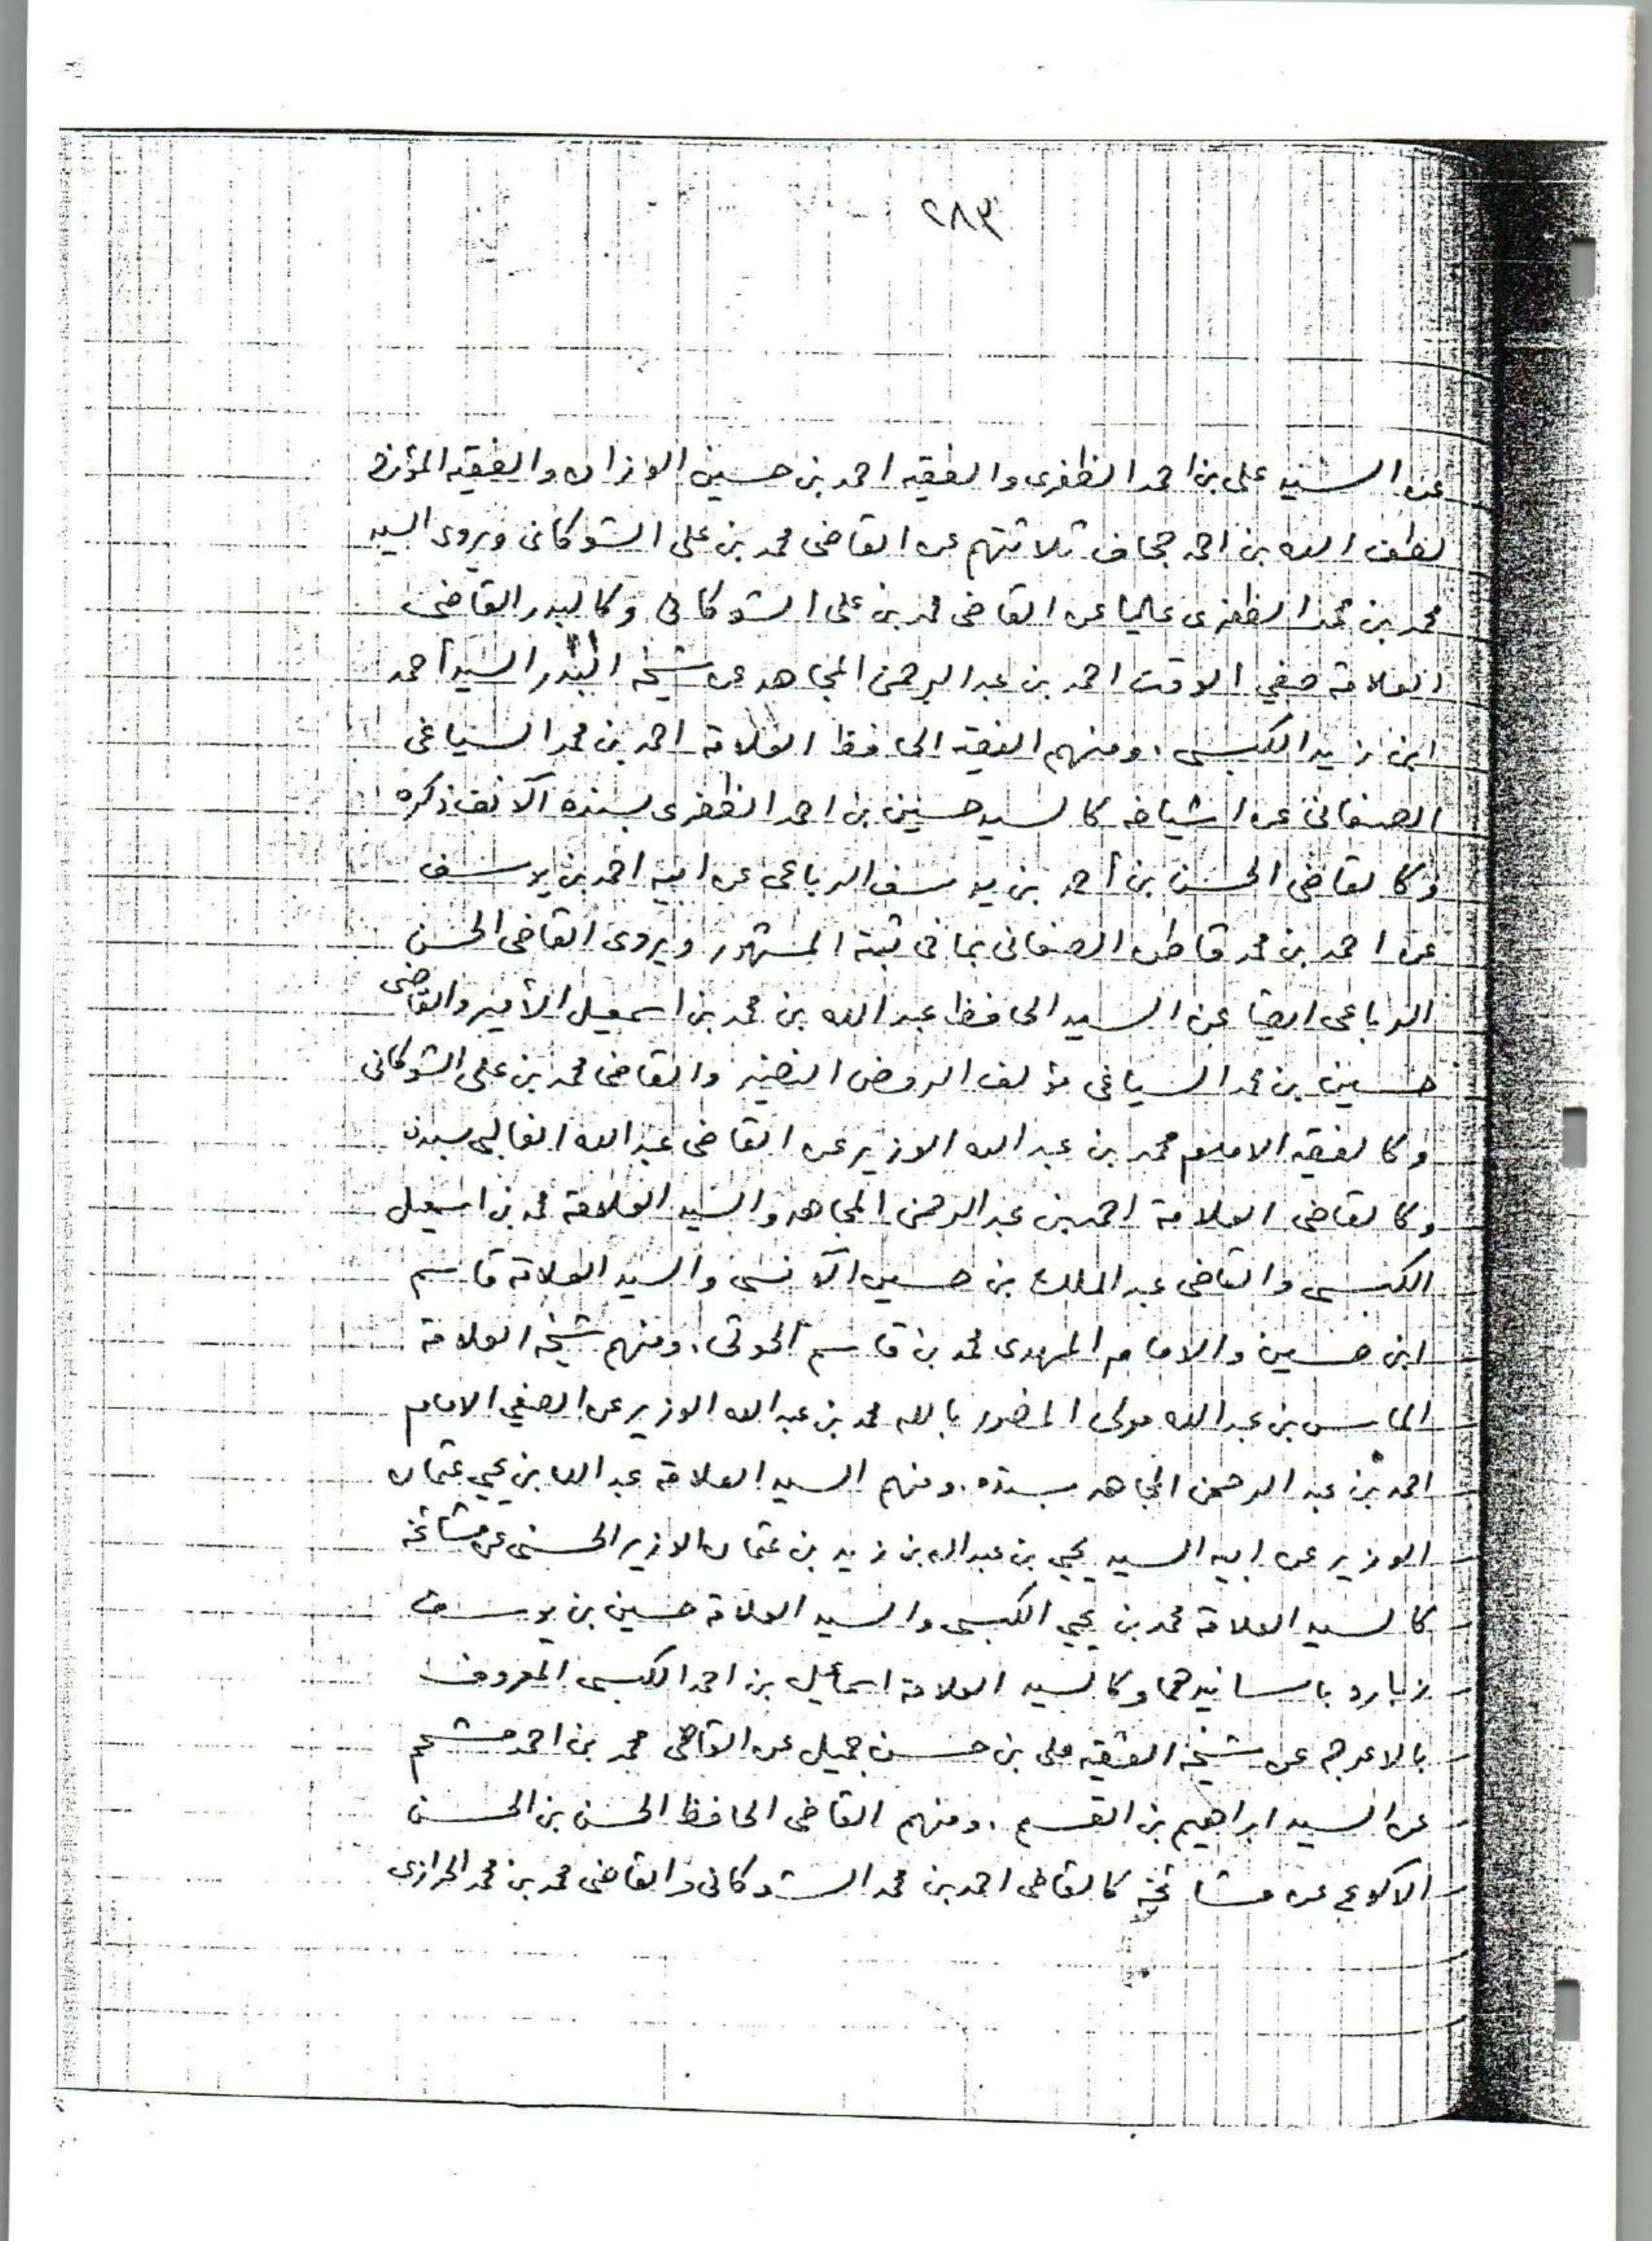 ٢٨٣
عن السيد على بن احمد الظفرى والفقيه احمد بن حسين الوزان والفقيه المؤرخ
لطف الله بن احمد جحاف ثلاثتهم عن القاضى محمد بن على الشوكانى ويروى السيد
محمد بن محمد الظفرى عاليا عن القاضى محمد بن على الشوكانى وكالبدر القاضى
العلامة صفي الوقت احمد بن عبد الرحمن المجاهد عن شيخه البدر السيد أحمد
ابن زيد الكبسى . ومنهم الفقيه الحافظ العلامة احمد بن محمد السياغى
الصنعانى عن اشياخه كالسيد حسين بن احمد الظفرى بسنده الآنف ذكره
وكالقاضى الحسن بن أحمد بن يوسف الرباعى عن ابيه احمد بن يوسف
عن احمد بن محمد قاطن الصنعانى بما فى ثبته المشهور ويروى القاضى الحسن
الرباعى ايضا عن السيد الحافظ عبد الله بن محمد بن اسمعيل الأمير والقاضى
حسين بن محمد السياغى مؤلف الروض النضير والقاضى محمد بن على الشوكانى
وكالفقيه الامام محمد بن عبد الله الوزير عن القاضى عبد الله الغالبى بسنده
وكالقاضى العلامة احمد بن عبد الرحمن المجاهد والسيد العلامة محمد بن اسمعيل
الكبسى والقاضى عبد الملك بن حسين الآنسى والسيد العلامة قاسم
ابن حسين والامام المهدى محمد بن قاسم الحوثى . ومنهم شيخه العلامة
الماس بن عبد الله مولى المنصور بالله محمد بن عبد الله الوزير عن الصفي الامام
احمد بن عبد الرحمن المجاهد بسنده . ومنهم السيد العلامة عبد الله بن يحيى عثمان
الوزير عن ابيه السيد يحيى بن عبد الله بن زيد بن عثمان الوزير الحسنى عن مشائخه
كالسيد العلامة محمد بن يحيى الكبسى والسيد العلامة حسين بن يوسف
زباره باسانيدهما وكالسيد العلامة اسماعيل بن احمد الكبسى المعروف
بالاعرج عن شيخه الفقيه على بن حسن جميل عن القاضى محمد بن احمد مشحم
عن السيد ابراهيم بن القسم . ومنهم القاضى الحافظ الحسن بن الحسن
الاكوع عن مشائخه كالقاضى احمد بن محمد الشوكانى والقاضى محمد بن محمد الحرازى